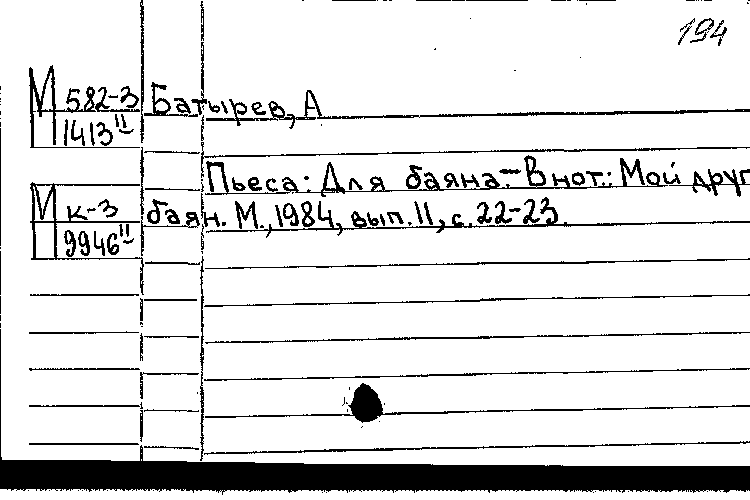 194
М 582-3 Батырев, А
1413 II
Пьеса: Для баяна.– В нот.: Мой друг
М к-3 баян. М., 1984, вып. 11, с. 22-23.
9946 II